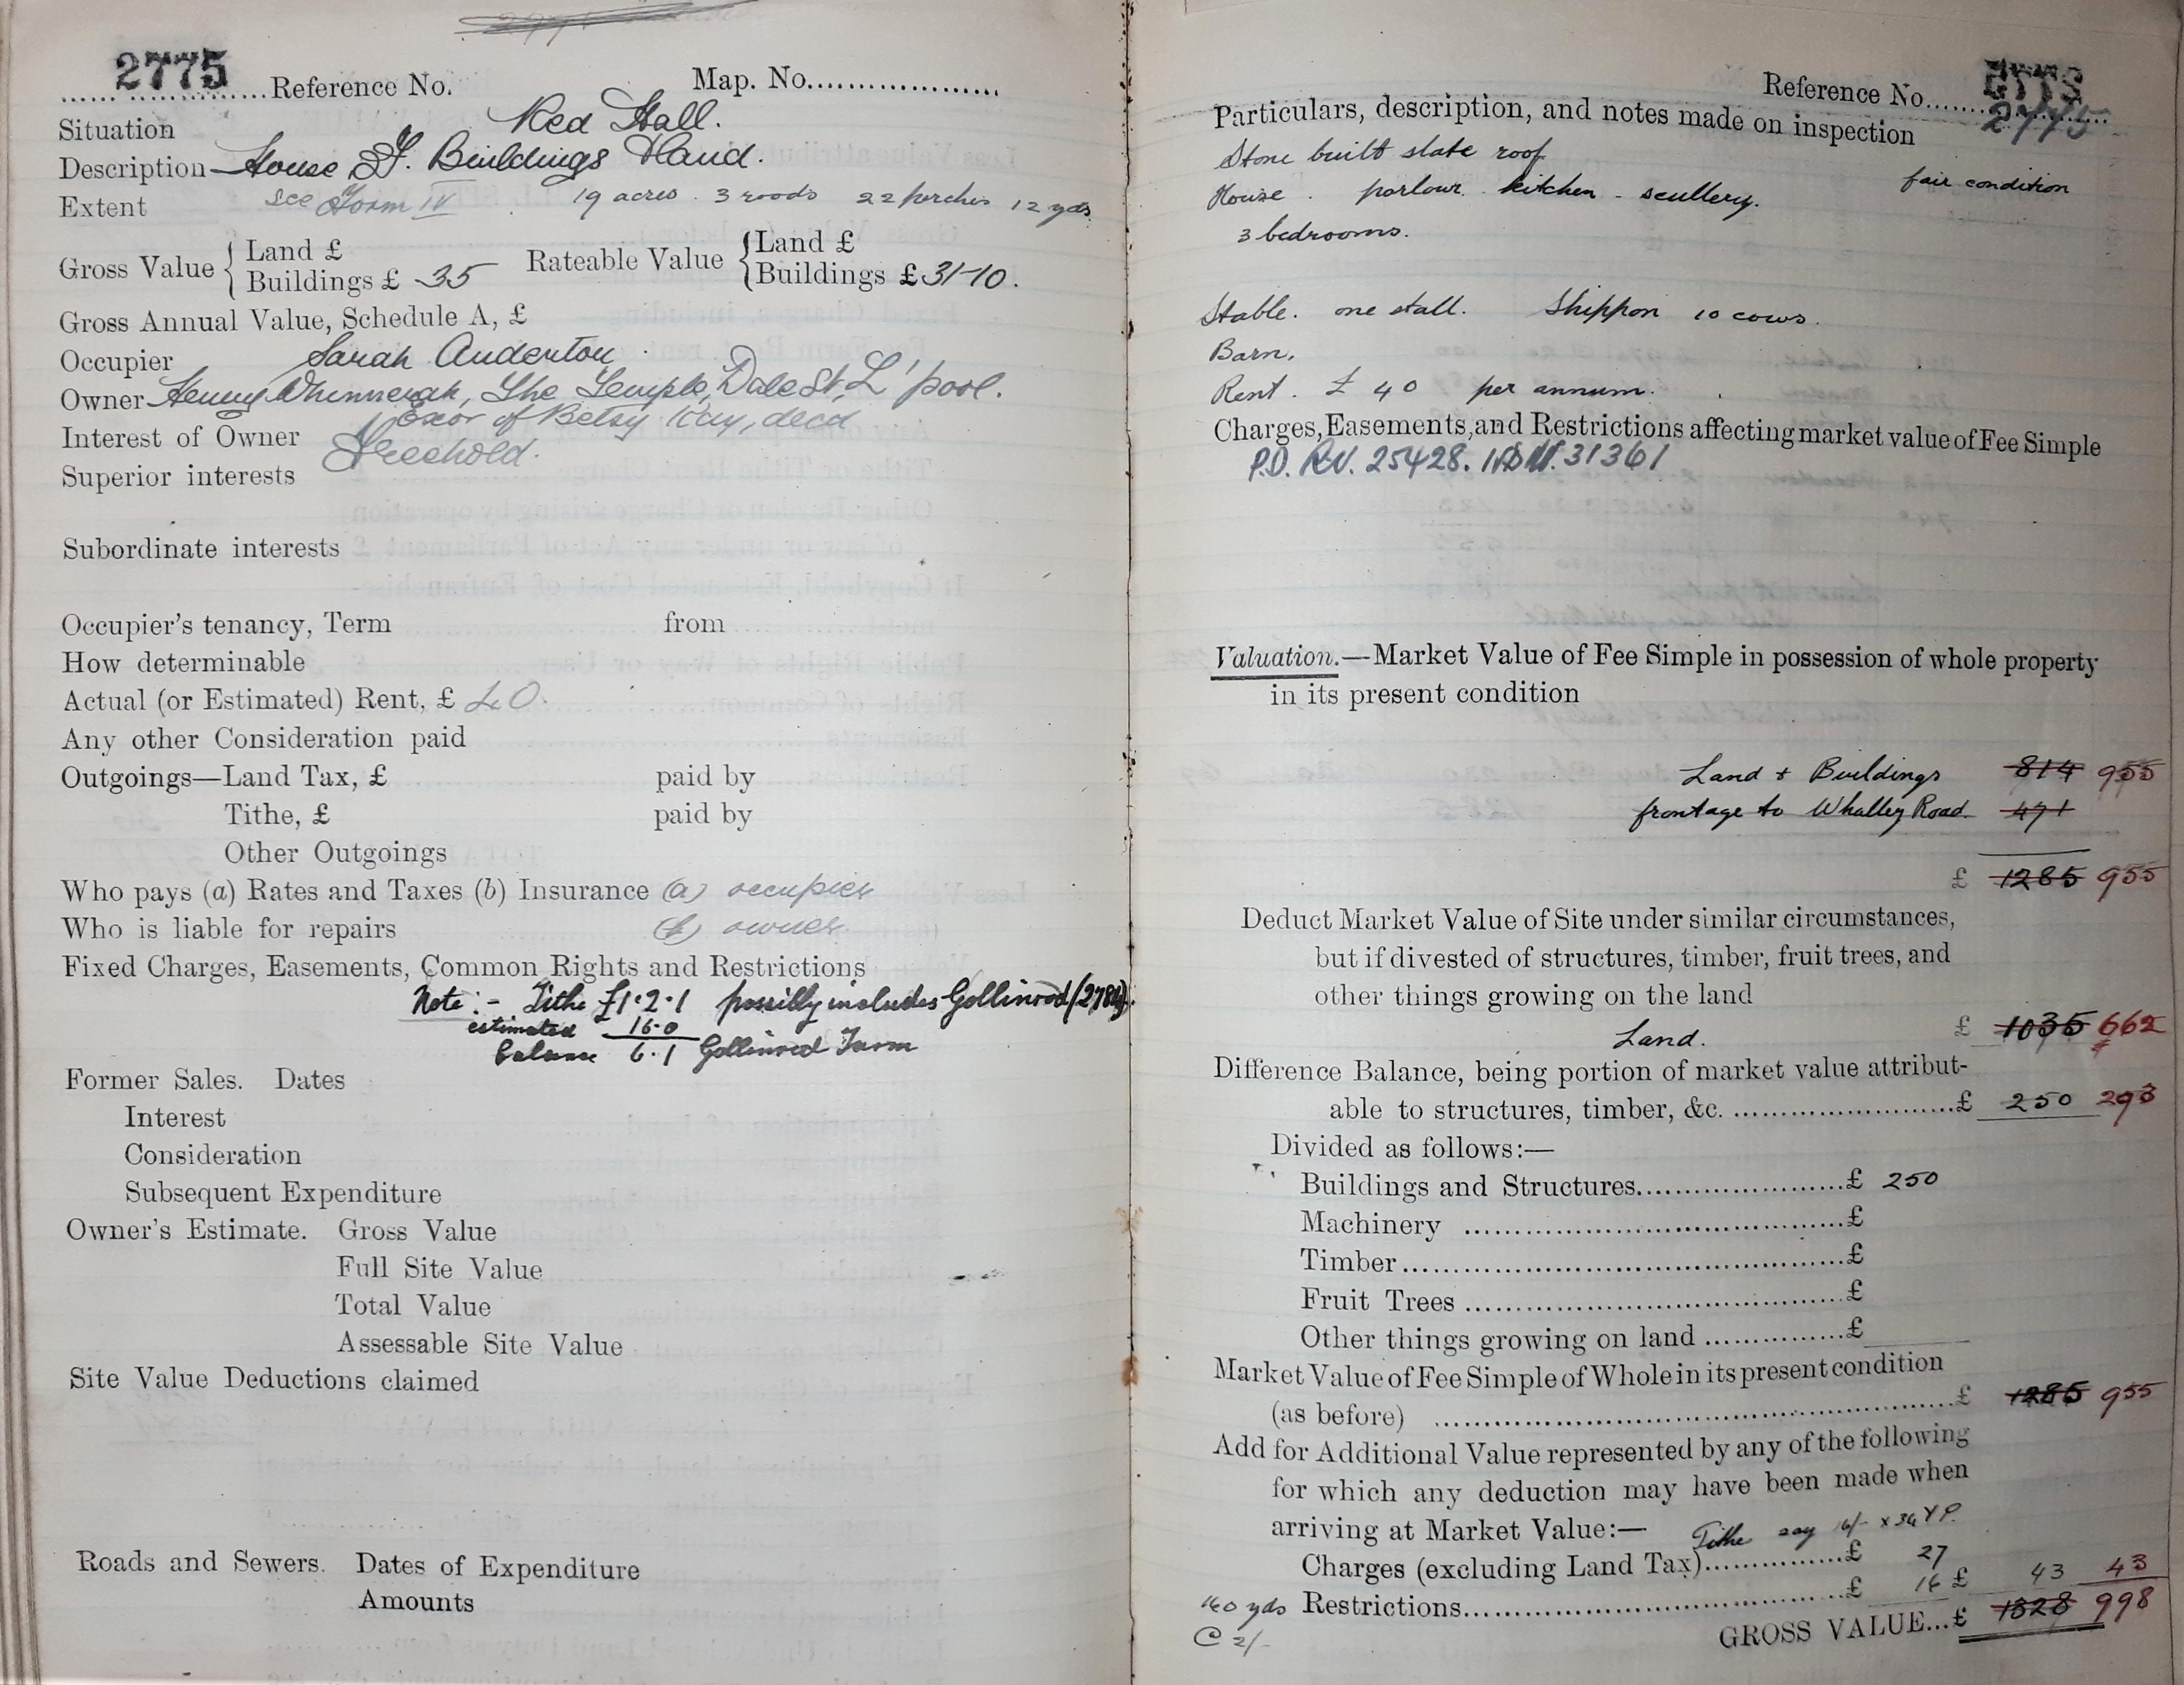 2775 Reference No. Map. No.
Situation Red Hall.
Description House F. Buildings & Land.
Extent see Form IV 19 acres . 3 roods 22 perches 12 yds
Gross Value { Land £
Buildings £ 35
Rateable Value { Land £
Buildings £ 31-10.
Gross Annual Value, Schedule A, £
Occupier Sarah Anderton
Owner Henry Whinnerah, The Temple, Dale St, L'pool.
Exor of Betsy Kay, decd
Interest of Owner Freehold.
Superior interests
Subordinate interests
Occupier's tenancy, Term from
How determinable
Actual (or Estimated) Rent, £ 40.
Any other Consideration paid
Outgoings—Land Tax, £ paid by
Tithe, £ paid by
Other Outgoings
Who pays (a) Rates and Taxes (b) Insurance (a) occupier
Who is liable for repairs (b) owner
Fixed Charges, Easements, Common Rights and Restrictions
Note :- Tithe £1·2·1 possibly includes Gollinrod (2784).
estimated 16·0
balance 6·1 Gollinrod Farm
Former Sales. Dates
Interest
Consideration
Subsequent Expenditure
Owner's Estimate. Gross Value
Full Site Value
Total Value
Assessable Site Value
Site Value Deductions claimed
Roads and Sewers. Dates of Expenditure
Amounts
Reference No. 2775
2775
Particulars, description, and notes made on inspection
Stone built slate roof
fair condition
House . parlour. kitchen - scullery.
3 bedrooms.
Stable. one stall. Shippon 10 cows.
Barn.
Rent . £ 40 per annum.
Charges, Easements, and Restrictions affecting market value of Fee Simple
P.D. RV. 25428. 31361
Valuation.—Market Value of Fee Simple in possession of whole property
in its present condition
Land + Buildings 814 955
frontage to Whalley Road 471
£ 1285 955
Deduct Market Value of Site under similar circumstances,
but if divested of structures, timber, fruit trees, and
other things growing on the land
Land. £ 1035 662
Difference Balance, being portion of market value attribut-
able to structures, timber, &c. £ 250 293
Divided as follows:—
Buildings and Structures £ 250
Machinery £
Timber £
Fruit Trees £
Other things growing on land £
Market Value of Fee Simple of Whole in its present condition
(as before) £ 1285 955
Add for Additional Value represented by any of the following
for which any deduction may have been made when
arriving at Market Value:— Tithe say 16/- x 34 YP.
Charges (excluding Land Tax) £ 27
160 yds Restrictions £ 16 £ 43 43
@ 2/-
GROSS VALUE...£ 1328 998